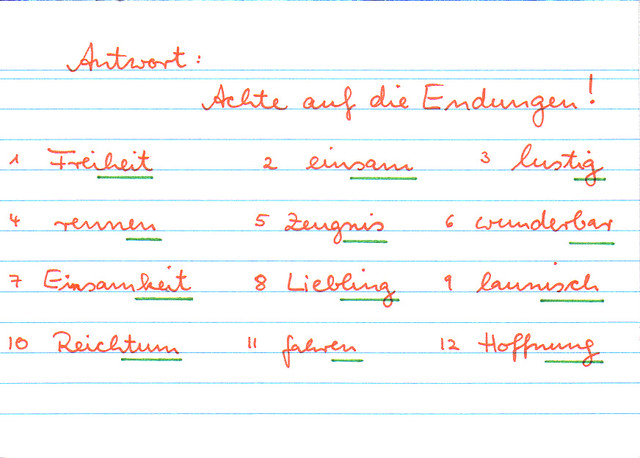 Antwort:
Achte auf die Endungen!
1 Freiheit 2 einsam 3 lustig
4 rennen 5 Zeugnis 6 wunderbar
7 Einsamkeit 8 Liebling 9 launisch
10 Reichtum 11 fahren 12 Hoffnung